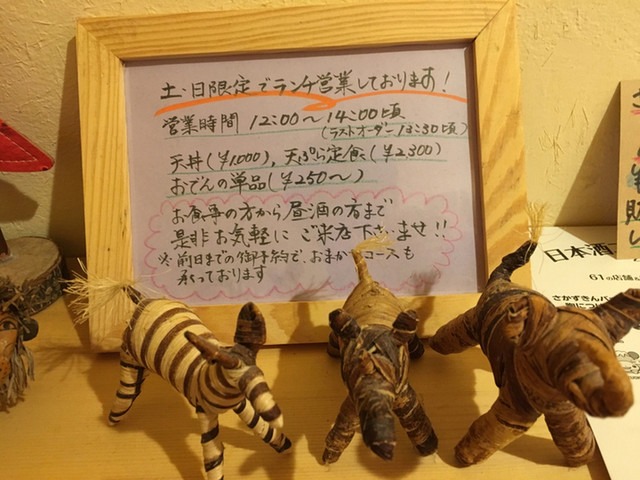 土・日限定でランチ営業しております!
営業時間 12:00〜14:00頃
(ラストオーダー13:30頃)
天丼(¥1,000), 天ぷら定食(¥2,300)
おでんの単品(¥250〜)
お食事の方から昼酒の方まで
是非お気軽にご来店下さいませ!!
※前日までの御予約で、おまかせコースも
承っております
日本酒
61の店舗
さかずきん